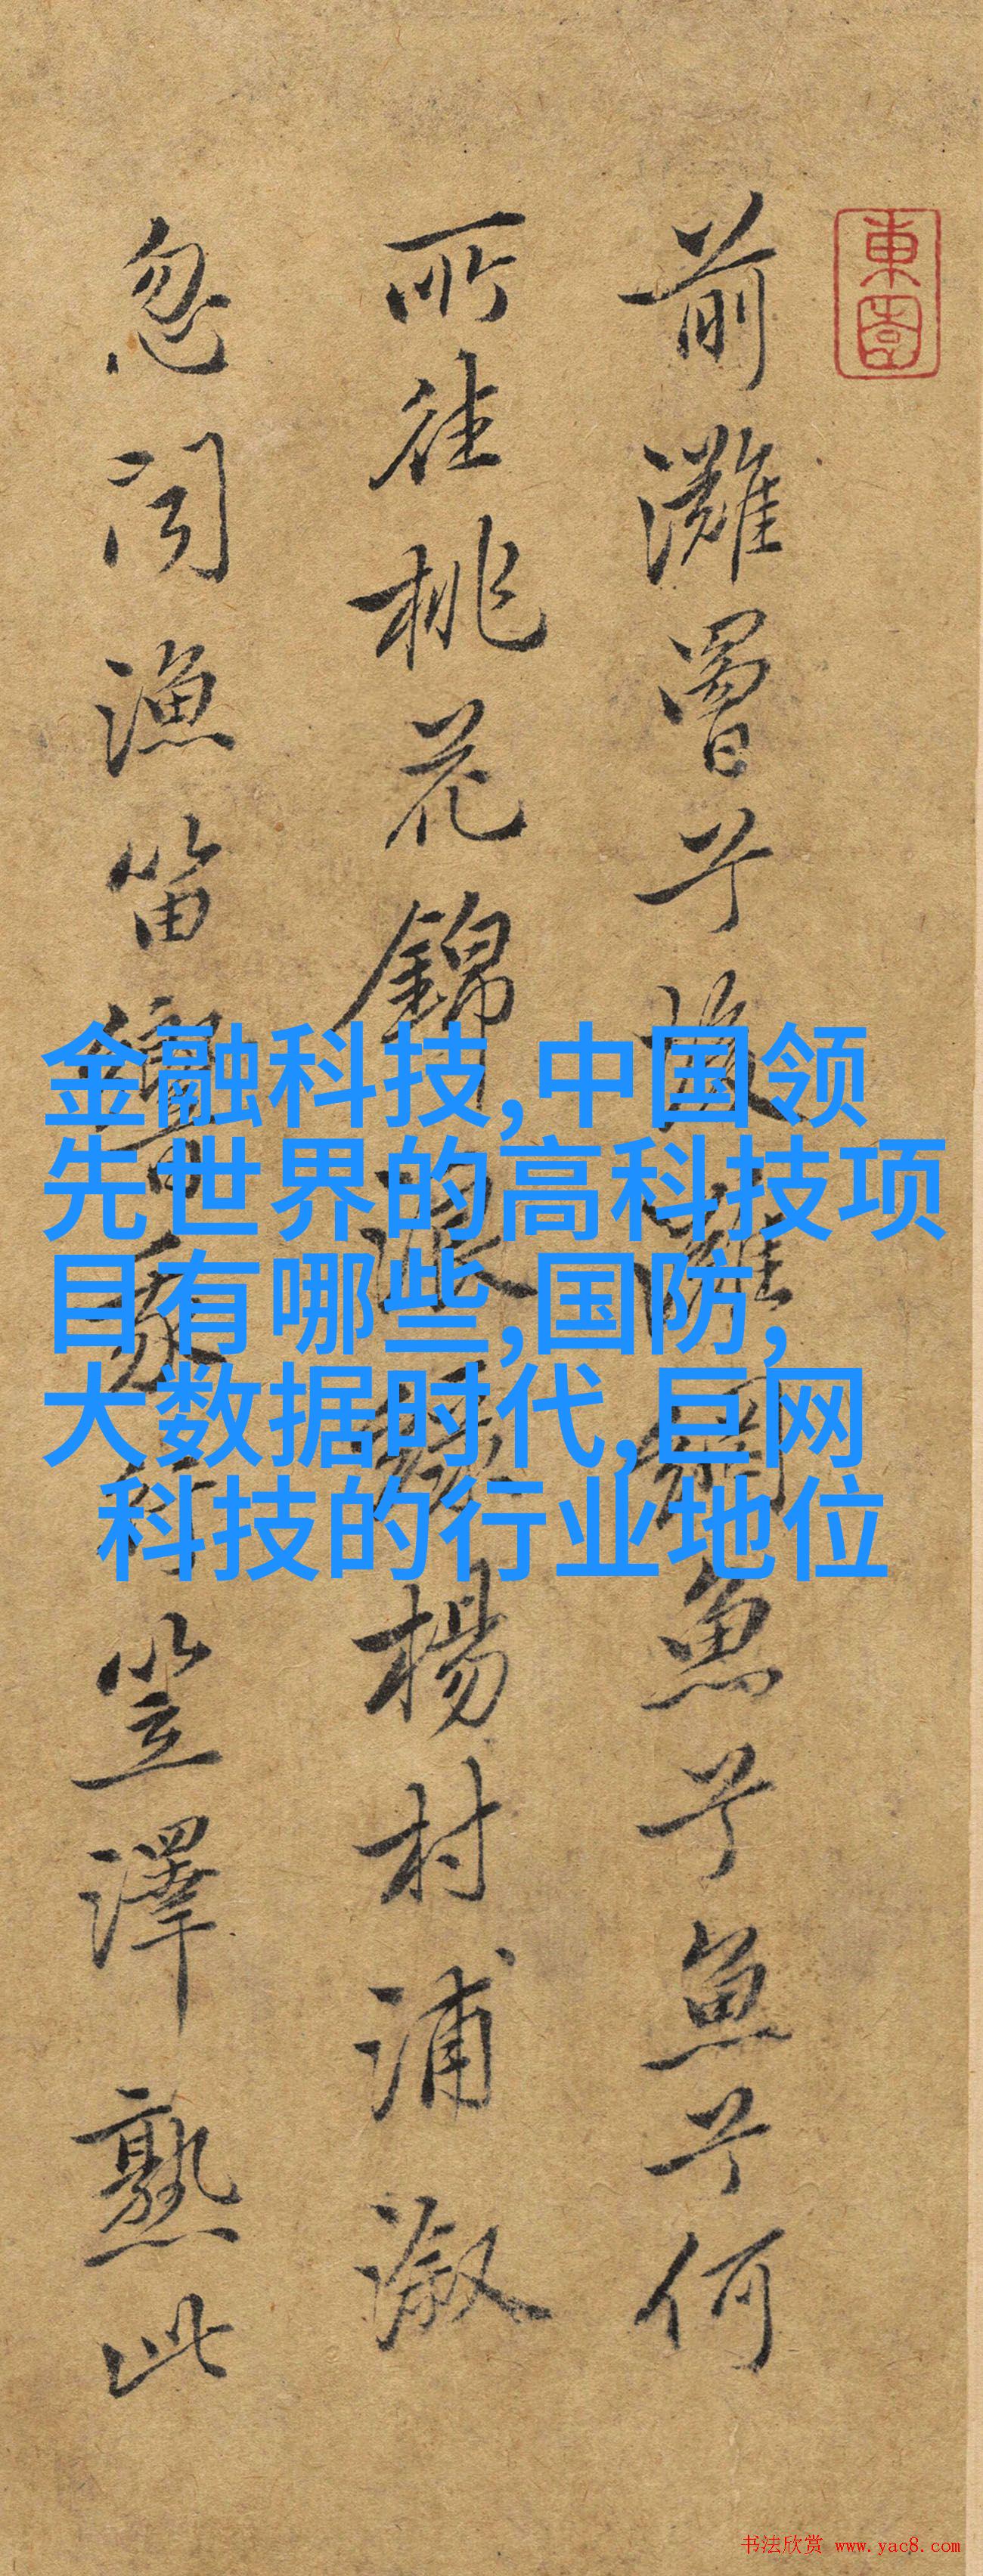 東園
前灘罾兮後灘網魚兮魚兮何
所往桃花錦浪綠楊村浦溆
忽聞漁笛響我行笠澤熟此
金融科技,中国领
先世界的高科技项
目有哪些,国防,
大数据时代,巨网
科技的行业地位
书法欣赏 www.yac8.com